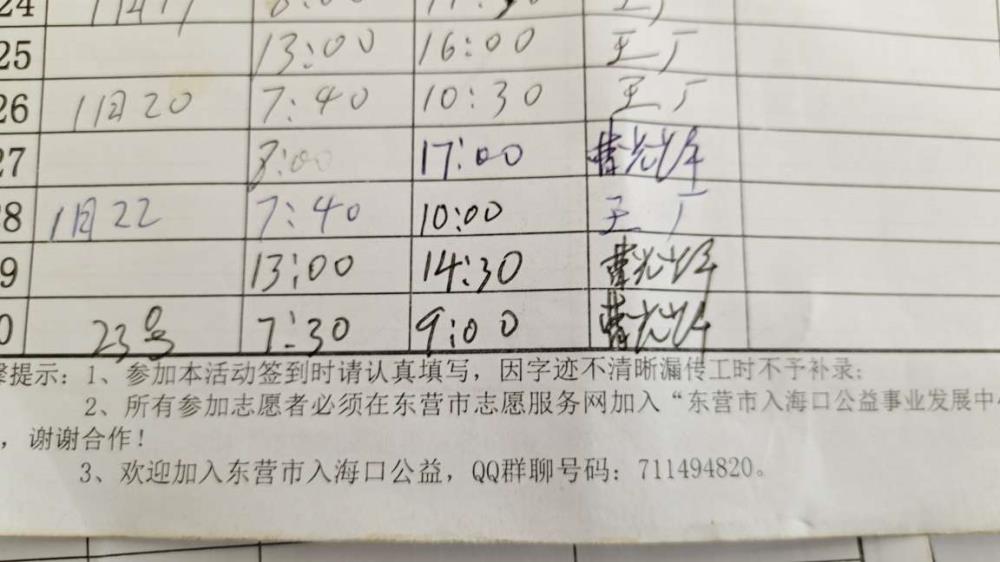 24
25 13:00 16:00 王厂
26 11月20 7:40 10:30 王厂
27 8:00 17:00
8 1月22 7:40 10:00 王厂
9 13:00 14:30
0 23号 7:30 9:00
提示：1、参加本活动签到时请认真填写，因字迹不清晰漏传工时不予补录；
2、所有参加志愿者必须在东营市志愿服务网加入“东营市入海口公益事业发展中
，谢谢合作！
3、欢迎加入东营市入海口公益，QQ群聊号码：711494820。